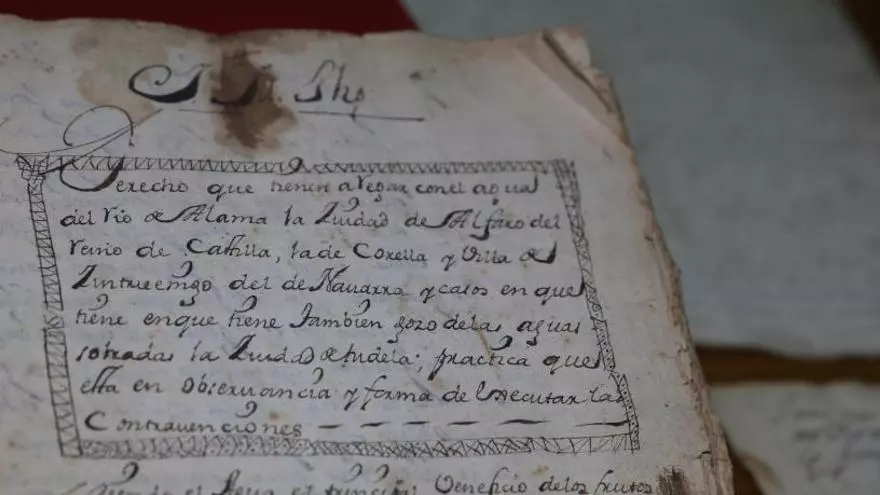 J. M. Jhs
Derecho que tienen a regar con el agua
del rio de Alama la Ziudad de Alfaro del
reino de Castilla, la de Corella y Villa de
Zintruenigo del de Navarra y casos en que
tiene en que tiene tambien gozo de las aguas
sobradas la Ziudad de tudela; practica que
esta en observancia y forma de executar las
Contravenciones
el Agua el principal Veneficio de los frutos